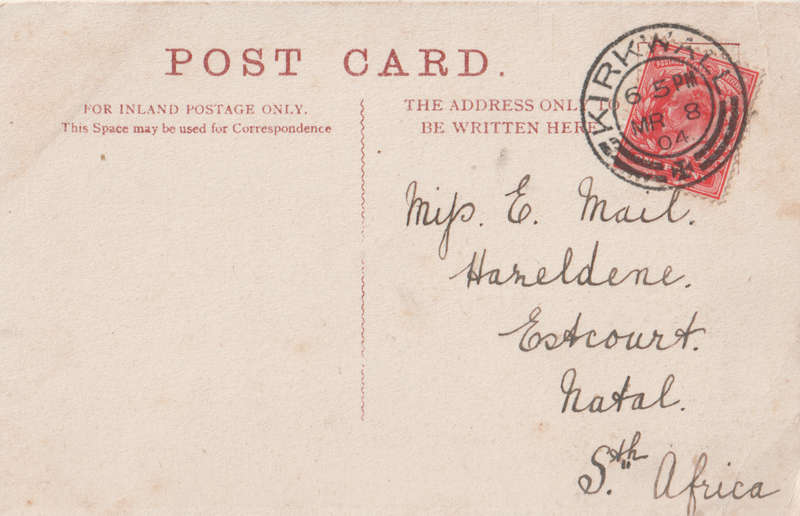 POST CARD.
FOR INLAND POSTAGE ONLY.
This Space may be used for Correspondence
THE ADDRESS ONLY TO
BE WRITTEN HERE
KIRKWALL
6.5 PM
MR 8
04
Miss. E. Mail.
Hazeldene.
Estcourt.
Natal.
Sth. Africa